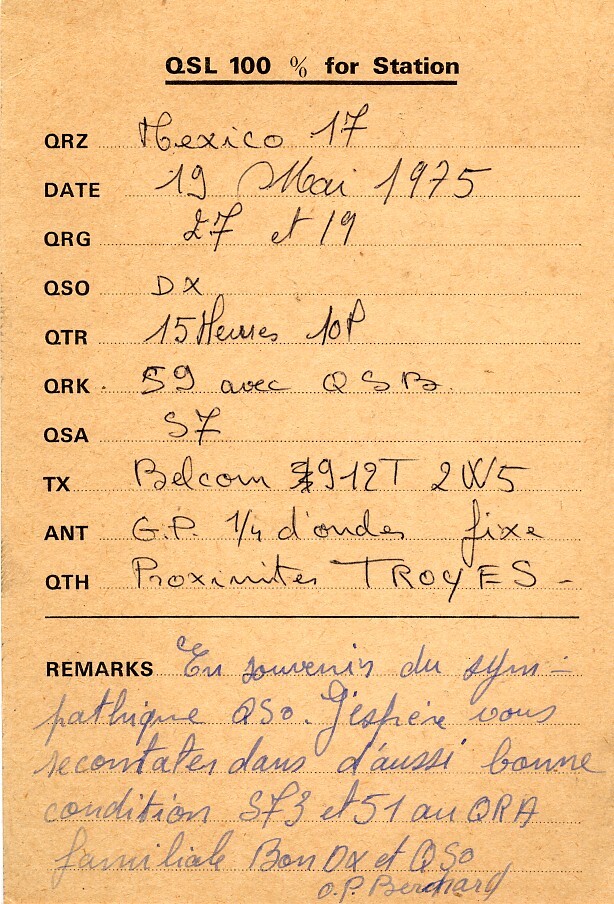 QSL 100 % for Station
QRZ Mexico 17
DATE 19 Mai 1975
QRG 27 et 19
QSO DX
QTR 15 Heures 10P
QRK 59 avec QSB.
QSA S7
TX Belcom 912T 2W5
ANT G.P. 1/4 d'ondes fixe
QTH Proximites TROYES -
REMARKS En souvenir du sym-
pathique QSO. J'espère vous
recontater dans d'aussi bonne
condition 573 et 51 au QRA
familiale Bon DX et QSO
O.P. Bernard